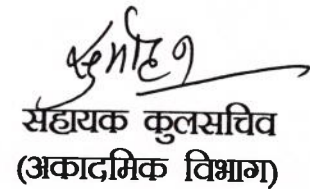 सहायक कुलसचिव
(अकादमिक विभाग)